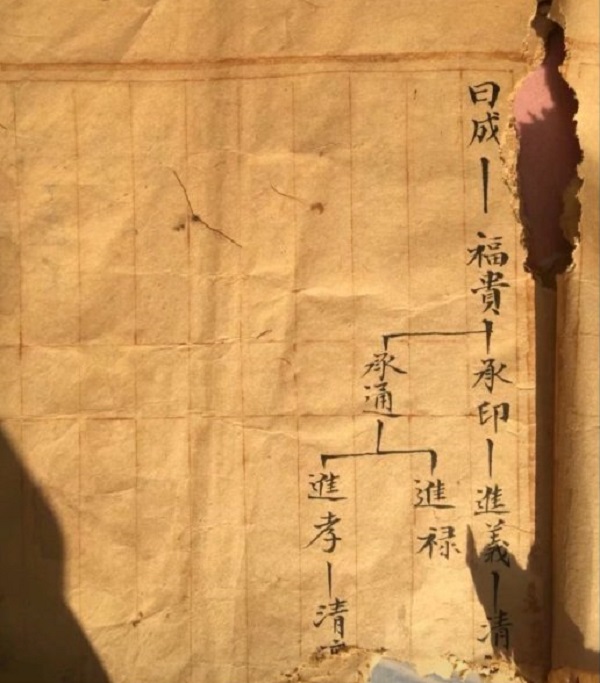 曰成
福貴
承印
承通
進義
進禄
進孝
清
清